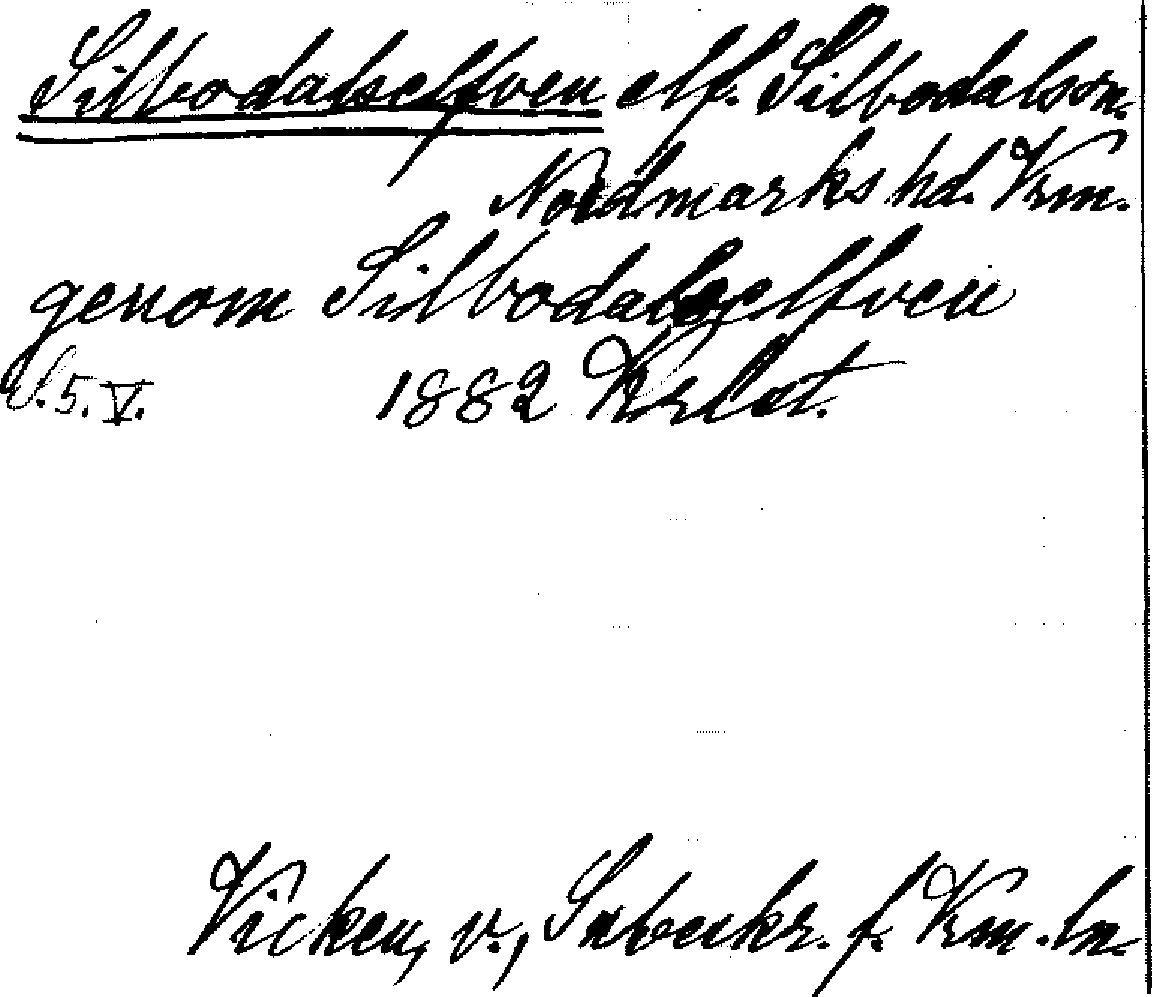 Silbodalselfven elf. Silbodals sn.
Nordmarks hd. Vrm.
genom Silbodalselfven
l.5.V. 1882
Vicken, v., f. Vrm. ln.